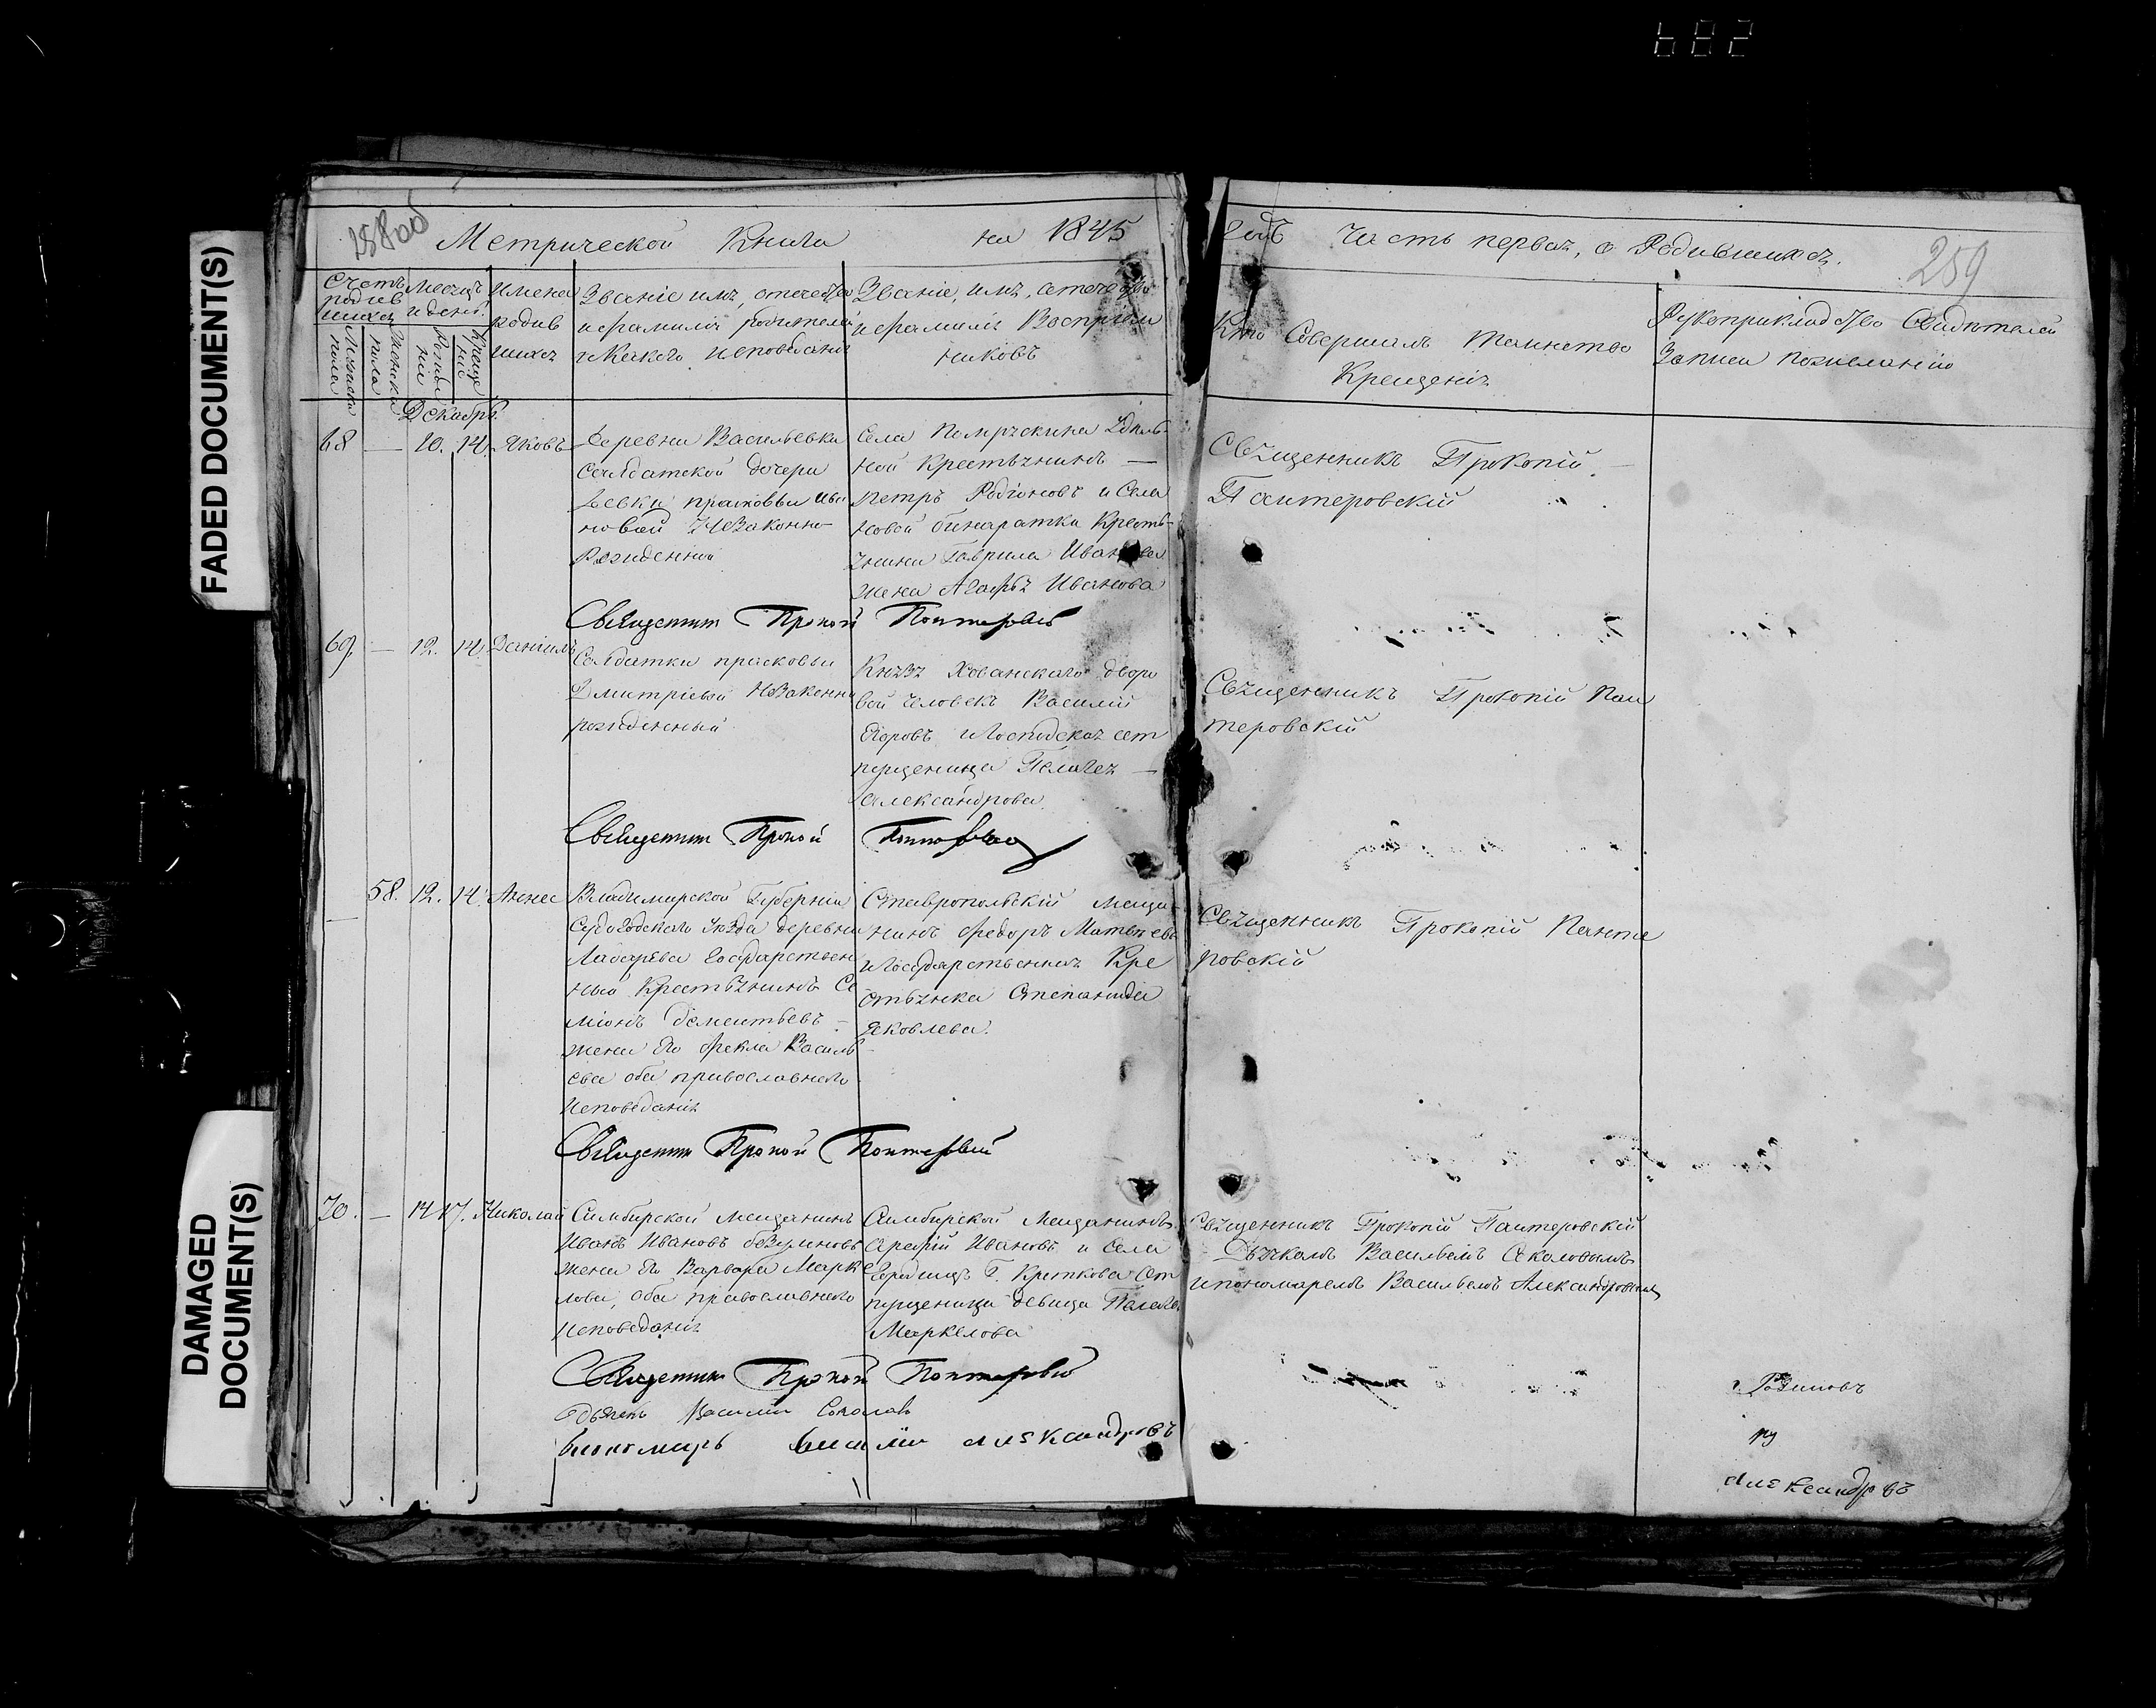 682
FADED DOCUMENT(S)
DAMAGED
DOCUMENT(S)
258 об
Метрической Книги на 1845
годъ Часть первая, о Родившихся.
259
Счетъ родив шихся
Мужеска пола
Женска пола
Месяцъ и день
Рожде нія
Креще нія
Имена родив шихся
Званіе имя, отечество
и фамилия родителей
и какого исповеданія
Званіе, имя, отечество
и фамилія Воспріем
никовъ
Кто Совершалъ таинство
Крещенія
Рукоприкладство Свидетелей
Записи по желанію
Декабрь
68 — 10. 14. Яковъ
Деревни Васильевки
Солдатской дочери
Девки прасковьи Ива
новой Незаконно
Рожденный
Села Помряскина Удель-
ной Крестьянинъ —
Петръ Родіоновъ и Села
Новой бинаратки Кресть-
янина Гаврила Иванова
жена Агафья Иванова
Священникъ Прокопій
Пантеровскій
Священник Прокопій Пантеровскій
69. — 12. 14. Даніилъ
Солдатки прасковьи
Дмитріевой Незаконно
рожденный
Князя Хованскаго дворо
вой человекъ Василій
Егоровъ и Господская от
пущеница Пелагея —
Александрова.
Священникъ Прокопій Пан
теровскій
Священник Прокопій
58. 12. 14. Анна
Владимирской Губерніи
Судогодскаго уезда деревни
Лазарева Государствен
ный Крестьянинъ Се
міонъ Дементьевъ —
жена его Фекла Василь
ева оба православнаго
исповеданія
Ставропольскій меща
нинъ Федоръ Матвеевъ
и Государственная Кре
стьянка Степанида
Яковлева.
Священникъ Прокопій Панте
ровскій
Священник Прокопій Пантеровский
70. — 14 17. Николай
Симбирской мещанинъ
Иванъ Ивановъ
жена его Варвара Марке
лова, оба православнаго
исповеданія
Симбирской Мещанинъ
Арефій Ивановъ и Села
Г. Кроткова От
пущеница девица Пелагея
Маркелова
Священникъ Прокопій Пантеровскій
Дьячкомъ Васильемъ Соколовымъ
и пономаремъ Васильемъ Александровымъ
Священник Прокопій Пантеровский
дьячекъ Василии Соколовъ
пономарь василии александровъ
ру
александровъ